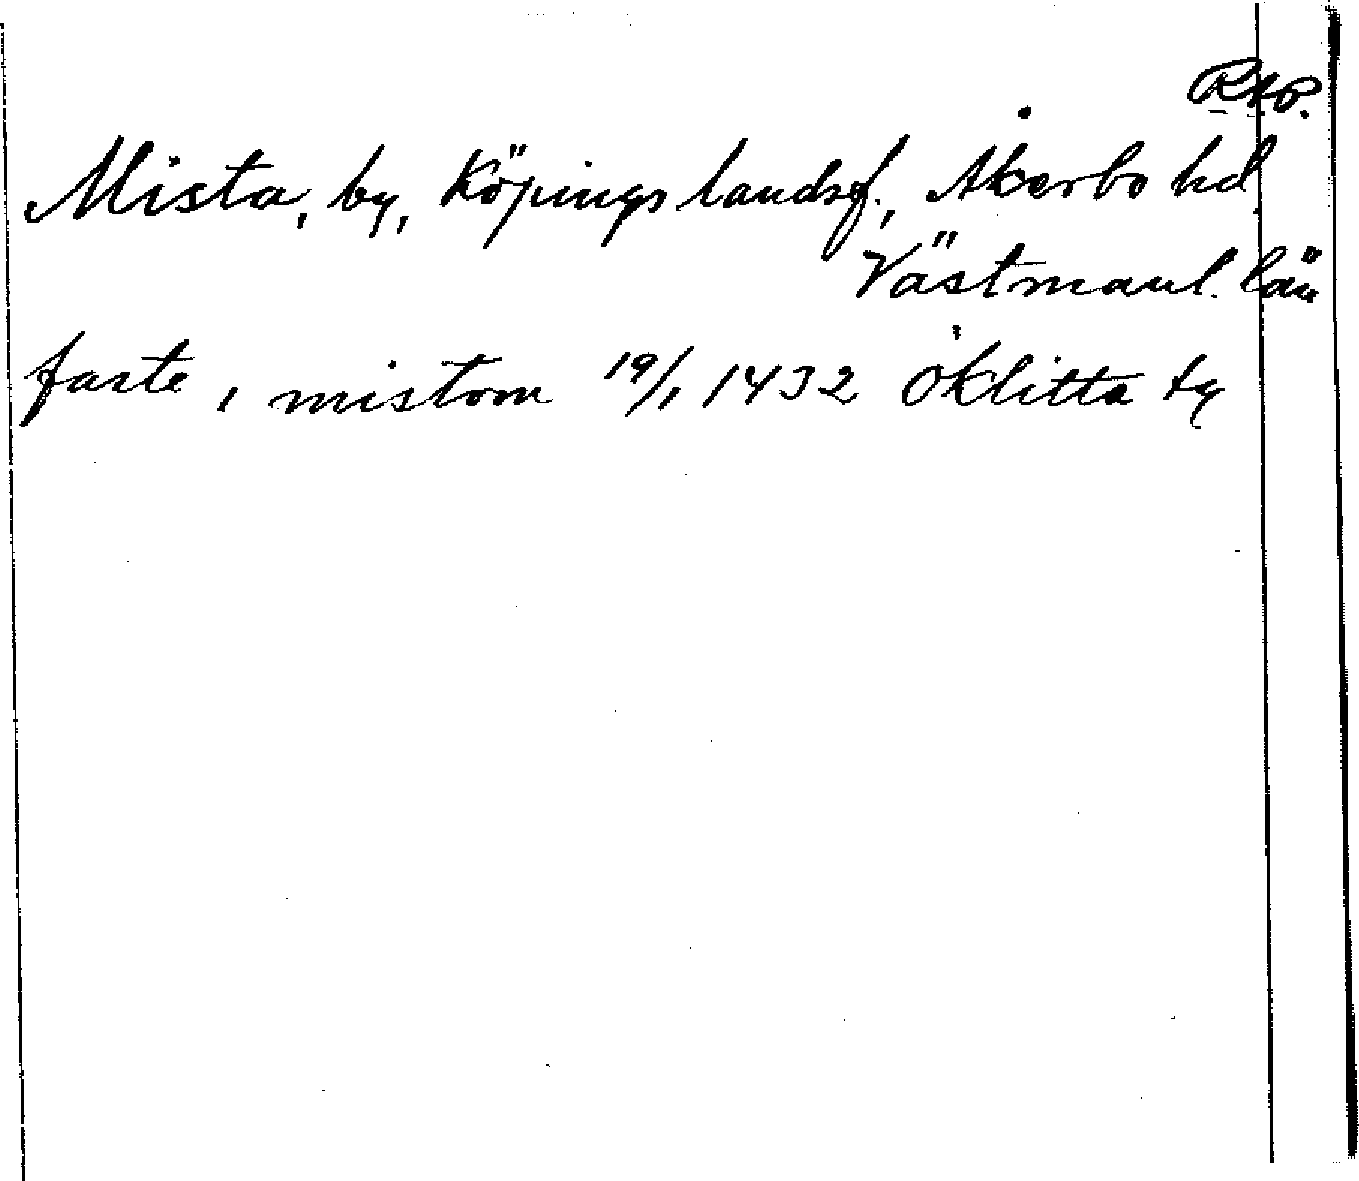 RAP.
Mista, by, Köpings landsf., Åkerbo hd.
Västmanl. län
faste i mistom 19/1 1432 Öklitta ty